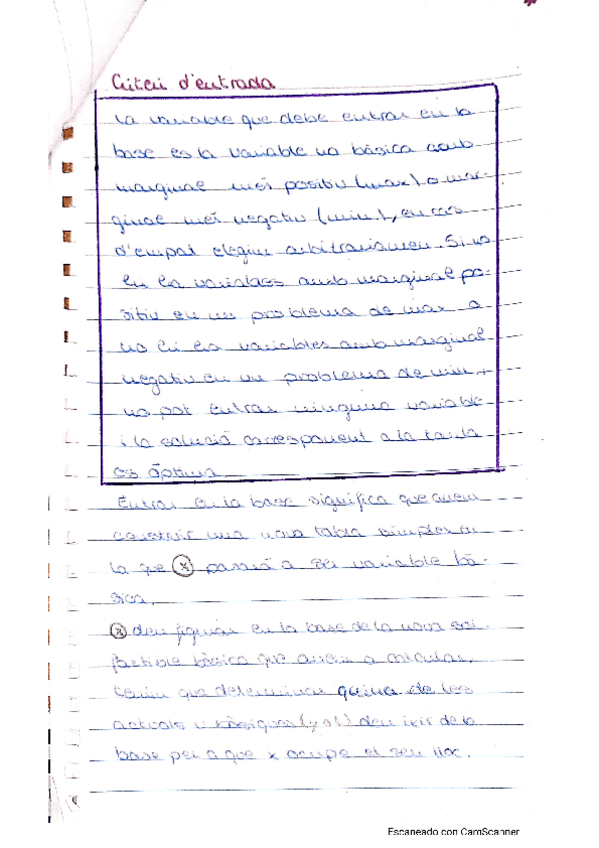 Criteri d'entrada
La variable que debe entrar en la
base es la variable no bàsica amb
marginal més positiu (max) o mar-
ginal més negatiu (min), en cas
d'empat elegim arbitrariamen. Si no
hi ha variables amb marginal po-
sitiu en un problema de max o
no hi ha variables amb marginal
negatiu en un problema de min,
no pot entrar ninguna variable
i la solució corresponent a la taula
és òptima.
Entrar en la base significa que anem
construir una nova tabla simplex en
la que x passarà a ser variable bà-
sica.
deu figurar en la base de la nova sol.
factible bàsica que anem a calcular,
tenim que determinar quina de les
actuals v. bàsiques deu ixir de la
base per a que x ocupe el seu lloc.
Escaneado con CamScanner